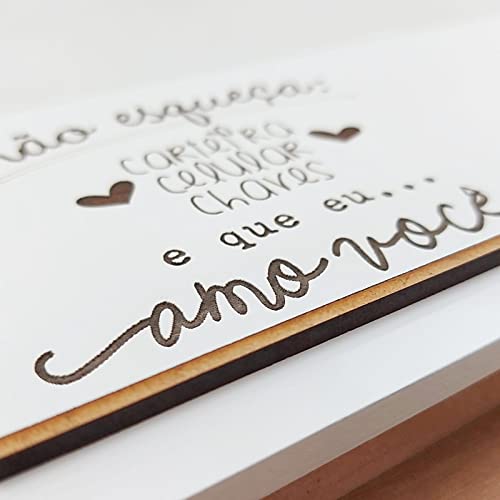 não esqueça:
carteira
celular
chaves
e que eu...
amo você